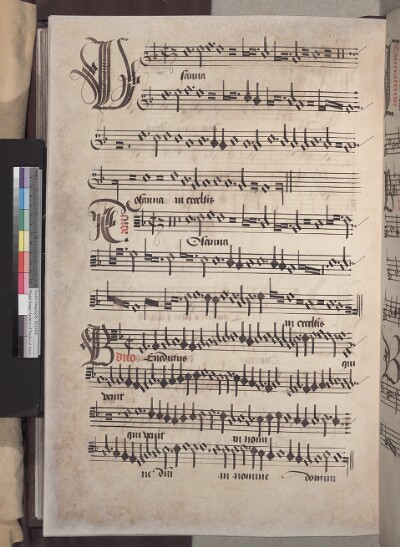 Osanna
Osanna in excelsis
Tenor
Osanna
in excelsis
Benedictus qui
duo
venit
qui venit in nomi
ne dni in nomine domini